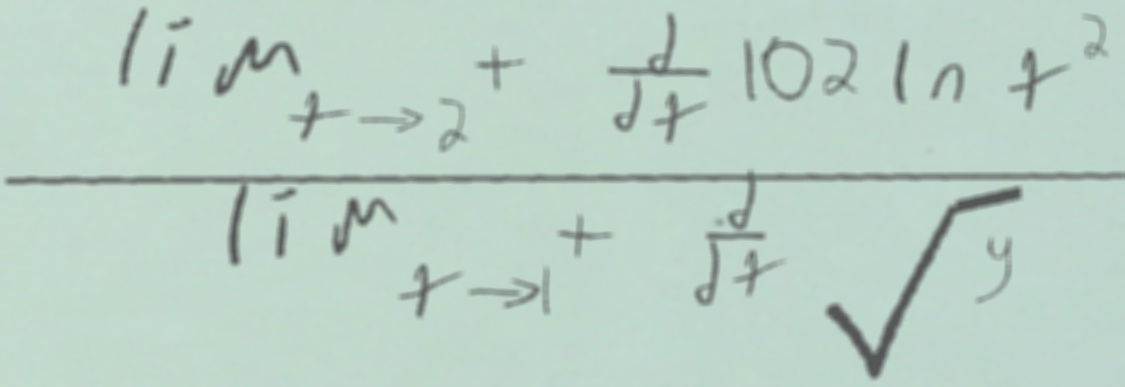 lim t→2 + d/dt 102 ln t²
lim t→1 + d/dt √y